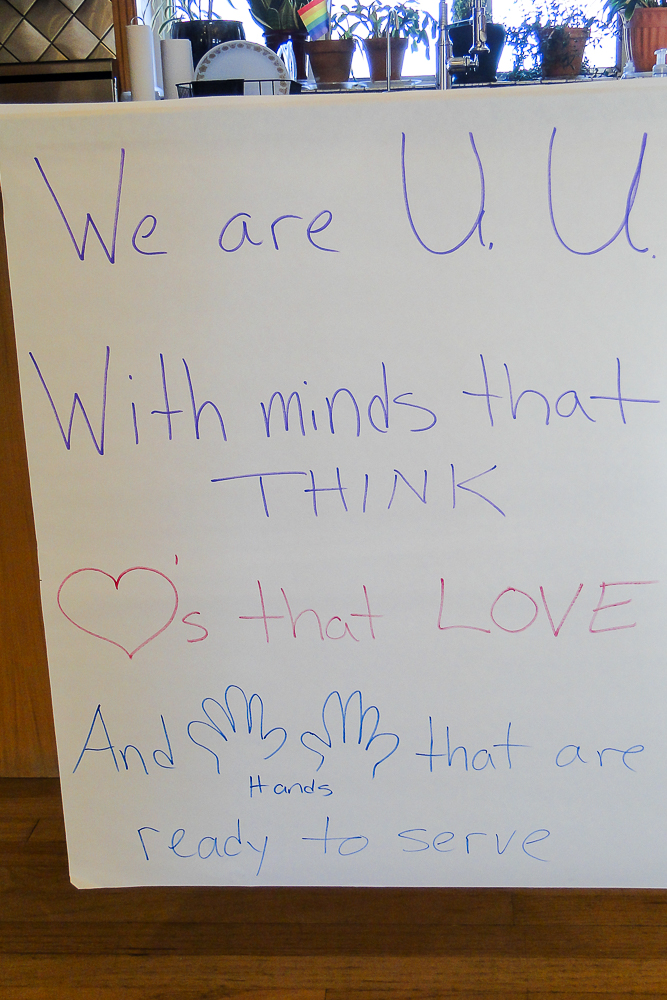 We are U. U.
With minds that
THINK
♡'s that LOVE
And that are
Hands
ready to serve